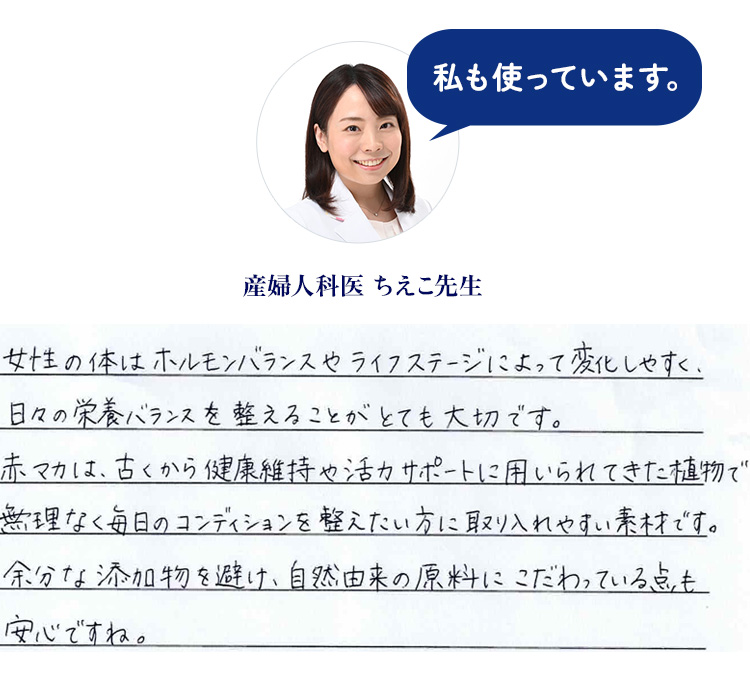 私も使っています。
産婦人科医 ちえこ先生
女性の体はホルモンバランスやライフステージによって変化しやすく、
日々の栄養バランスを整えることがとても大切です。
赤マカは、古くから健康維持や活力サポートに用いられてきた植物で
無理なく毎日のコンディションを整えたい方に取り入れやすい素材です。
余分な添加物を避け、自然由来の原料にこだわっている点も
安心ですね。